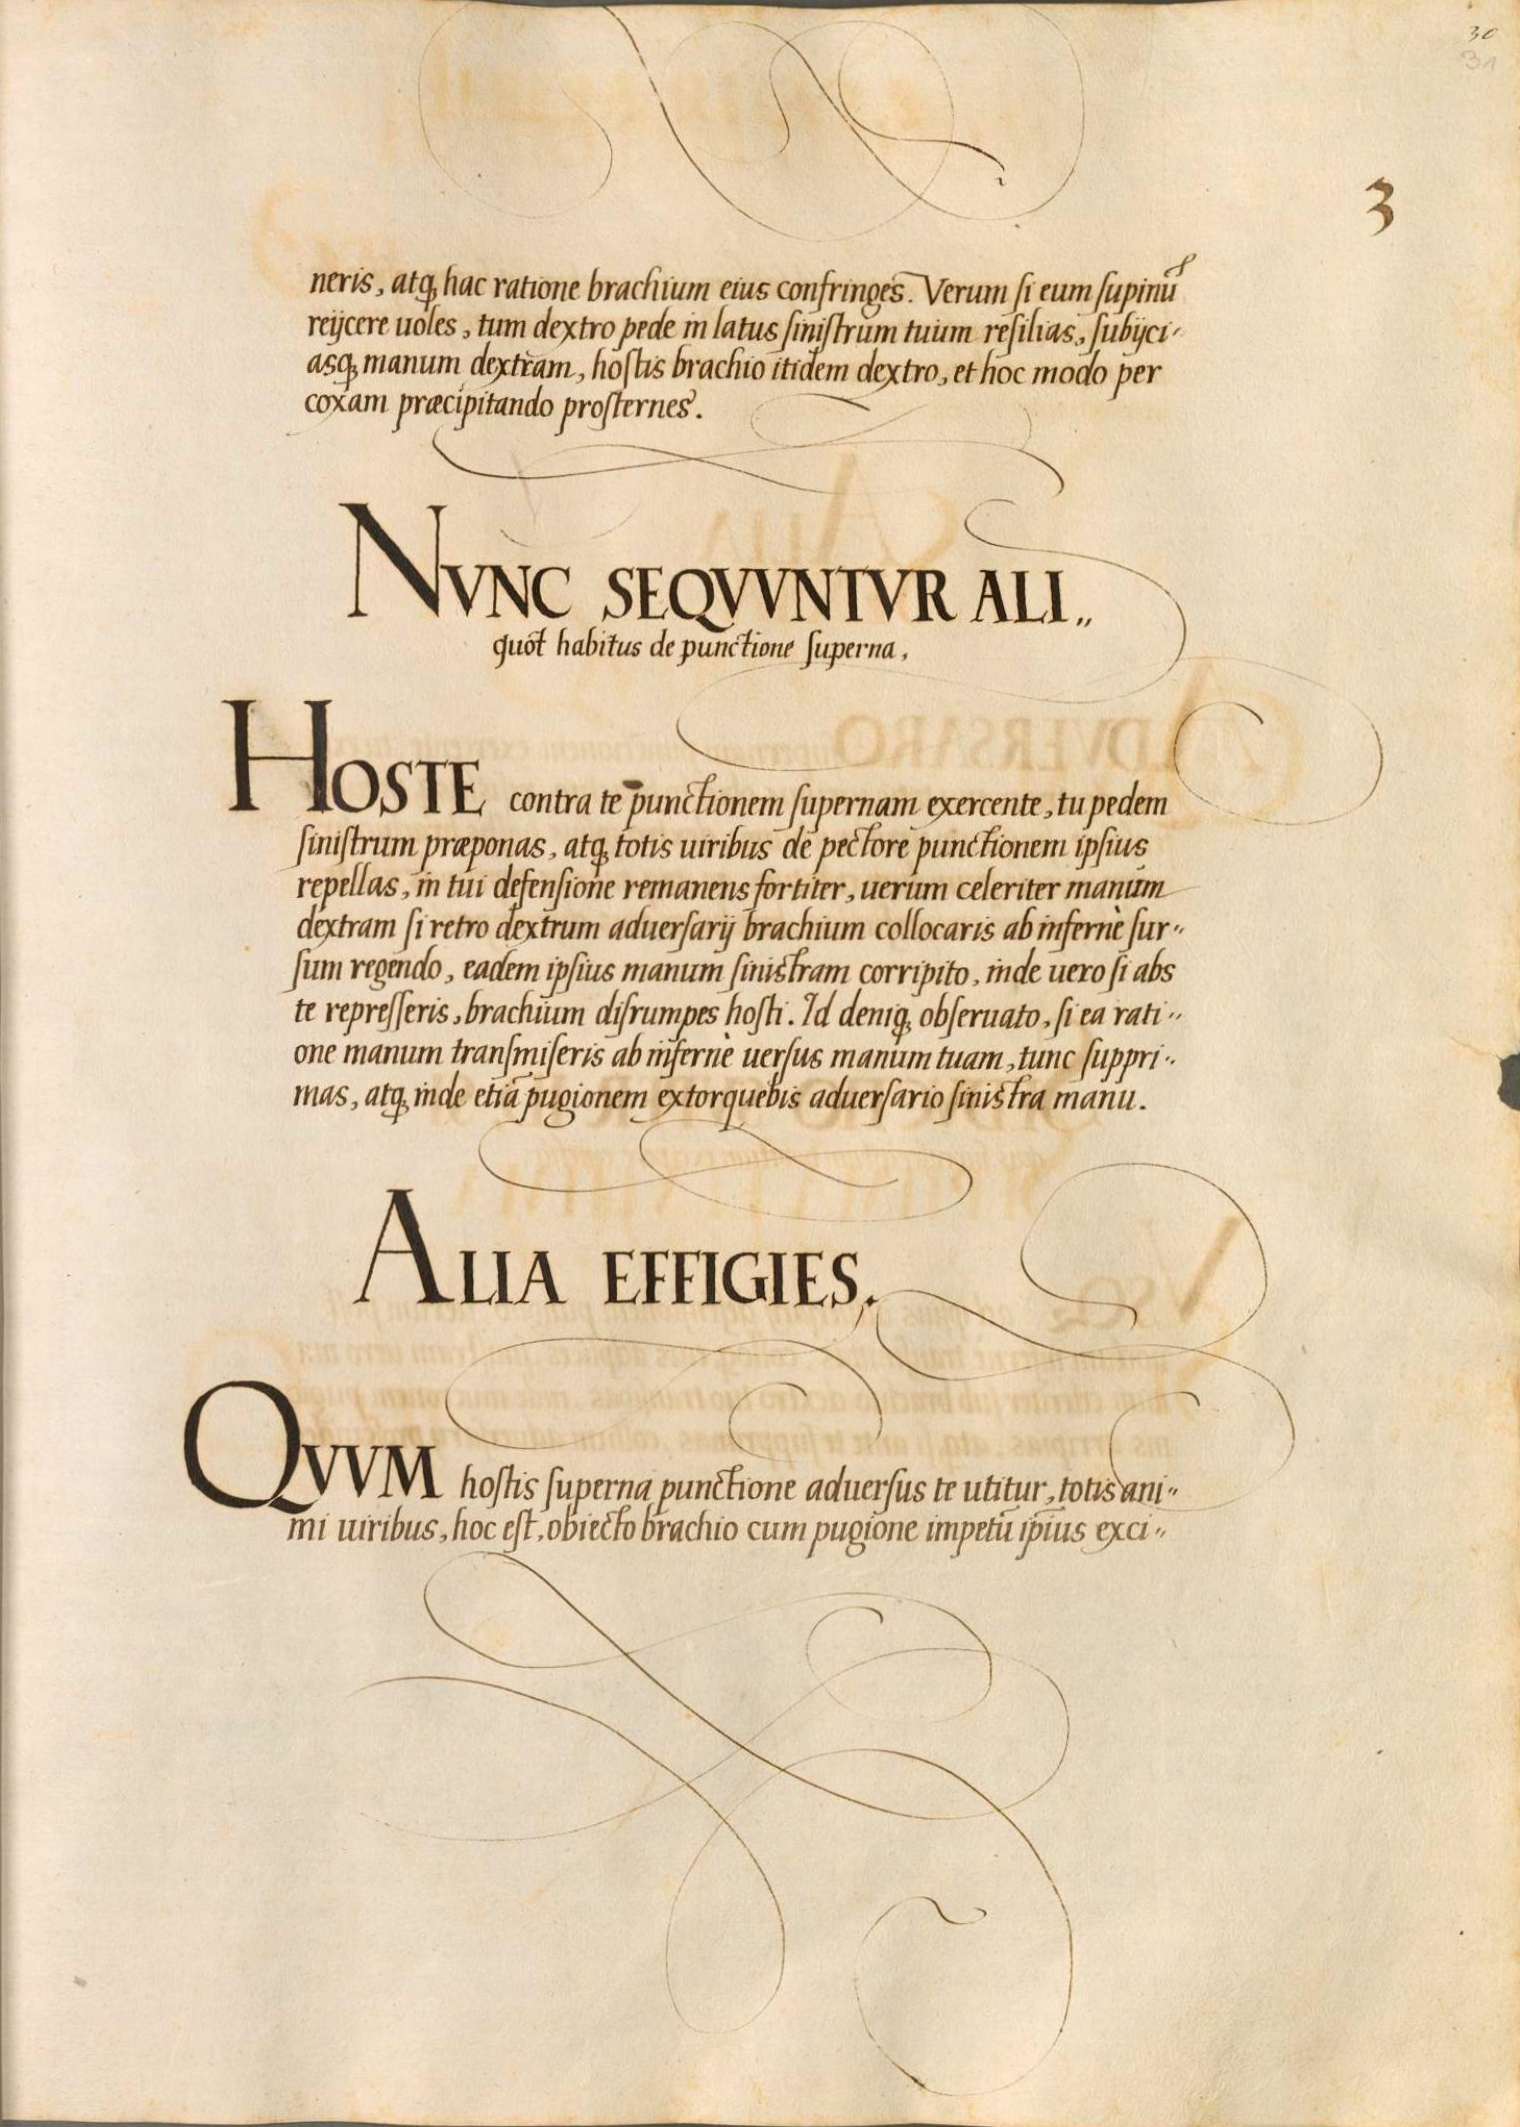 30
31
3
neris, atq; hac ratione brachium eius confringes. Verum ſi eum ſupinū
reijcere uoles, tum dextro pede in latus ſiniſtrum tuum reſilias, ſubijci-
asq; manum dextram, hoſtis brachio itidem dextro, et hoc modo per
coxam præcipitando proſternes.
NVNC SEQVVNTVR ALI„
quot habitus de punctione ſuperna,
HOSTE contra te punctionem ſupernam exercente, tu pedem
ſiniſtrum præponas, atq; totis uiribus de pectore punctionem ipſius
repellas, in tui defenſione remanens fortiter, uerum celeriter manum
dextram ſi retro dextrum aduerſarij brachium collocaris ab infernè ſur„
ſum regendo, eadem ipſius manum ſiniſtram corripito, inde uero ſi abs
te repreſſeris, brachium diſrumpes hoſti. Id deniq; obſeruato, ſi ea rati„
one manum tranſmiſeris ab infernè uerſus manum tuam, tunc ſuppri„
mas, atq; inde etiā pugionem extorquebis aduerſario ſiniſtra manu.
ALIA EFFIGIES.
QVVM hoſtis ſuperna punctione aduerſus te utitur, totis ani„
mi uiribus, hoc eſt, obiecto brachio cum pugione impetū ip̄ius exci„